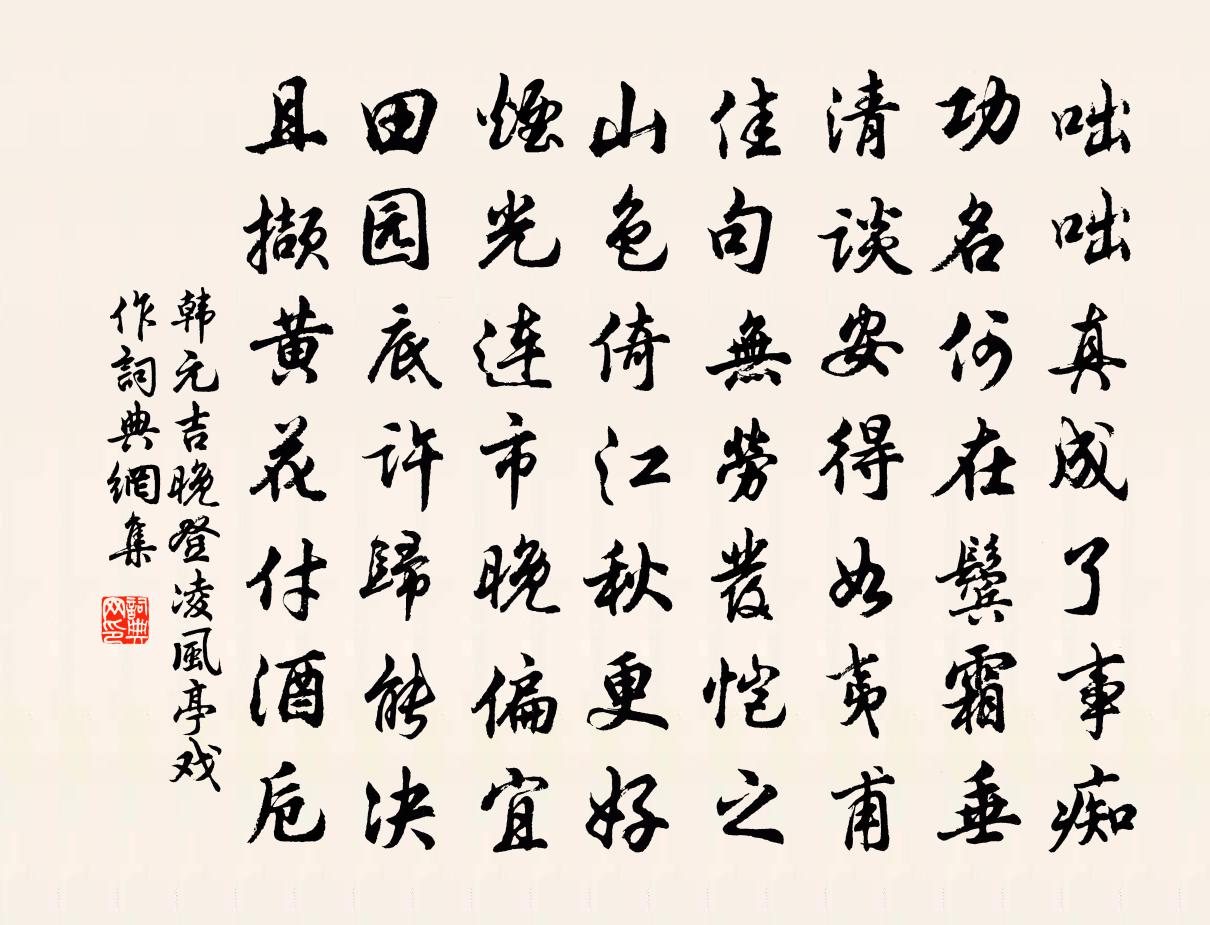 咄咄真成了事痴
功名何在鬓霜垂
清谈安得如夷甫
佳句無勞發恺之
山色倚江秋更好
煙光連市晚偏宜
田园底许歸能决
且撷黄花付酒卮
韩元吉晚登凌風亭戏
作詞典網集
詞典网印